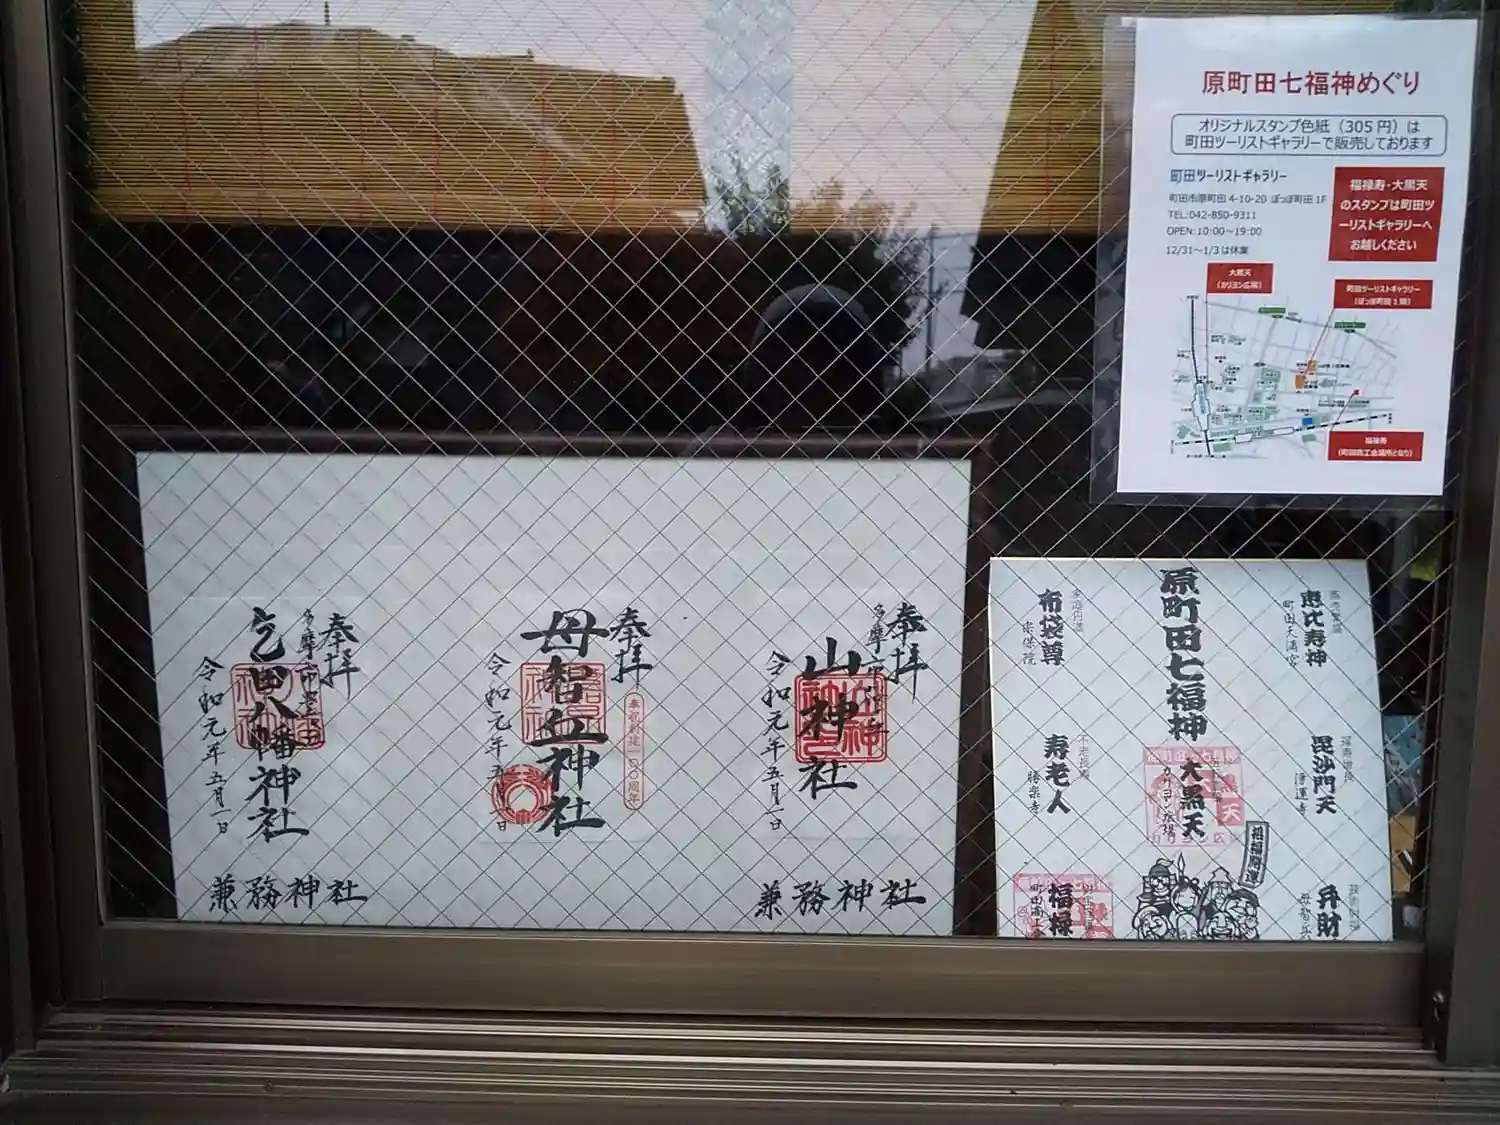 原町田七福神めぐり
オリジナルスタンプ色紙（305円）は
町田ツーリストギャラリーで販売しております
町田ツーリストギャラリー
町田市原町田 4-10-20 ぽっぽ町田 1F
TEL:042-850-9311
OPEN:10:00～19:00
12/31～1/3は休業
福禄寿・大黒天
のスタンプは町田ツ
ーリストギャラリーへ
お越しください
大黒天
（カリヨン広場）
町田ツーリストギャラリー
（ぽっぽ町田1階）
福禄寿
（町田商工会議所となり）
奉拝
多摩市
乞田八幡神社
令和元年五月一日
兼務神社
奉拝
母智丘神社
令和元年五月一日
奉拝
多摩市
山神社
令和元年五月一日
兼務神社
恵比寿神
町田天満宮
原町田七福神
布袋尊
宗保院
毘沙門天
浄運寺
大黒天
カリヨン広場
寿老人
勝楽寺
招福開運
弁財
福禄